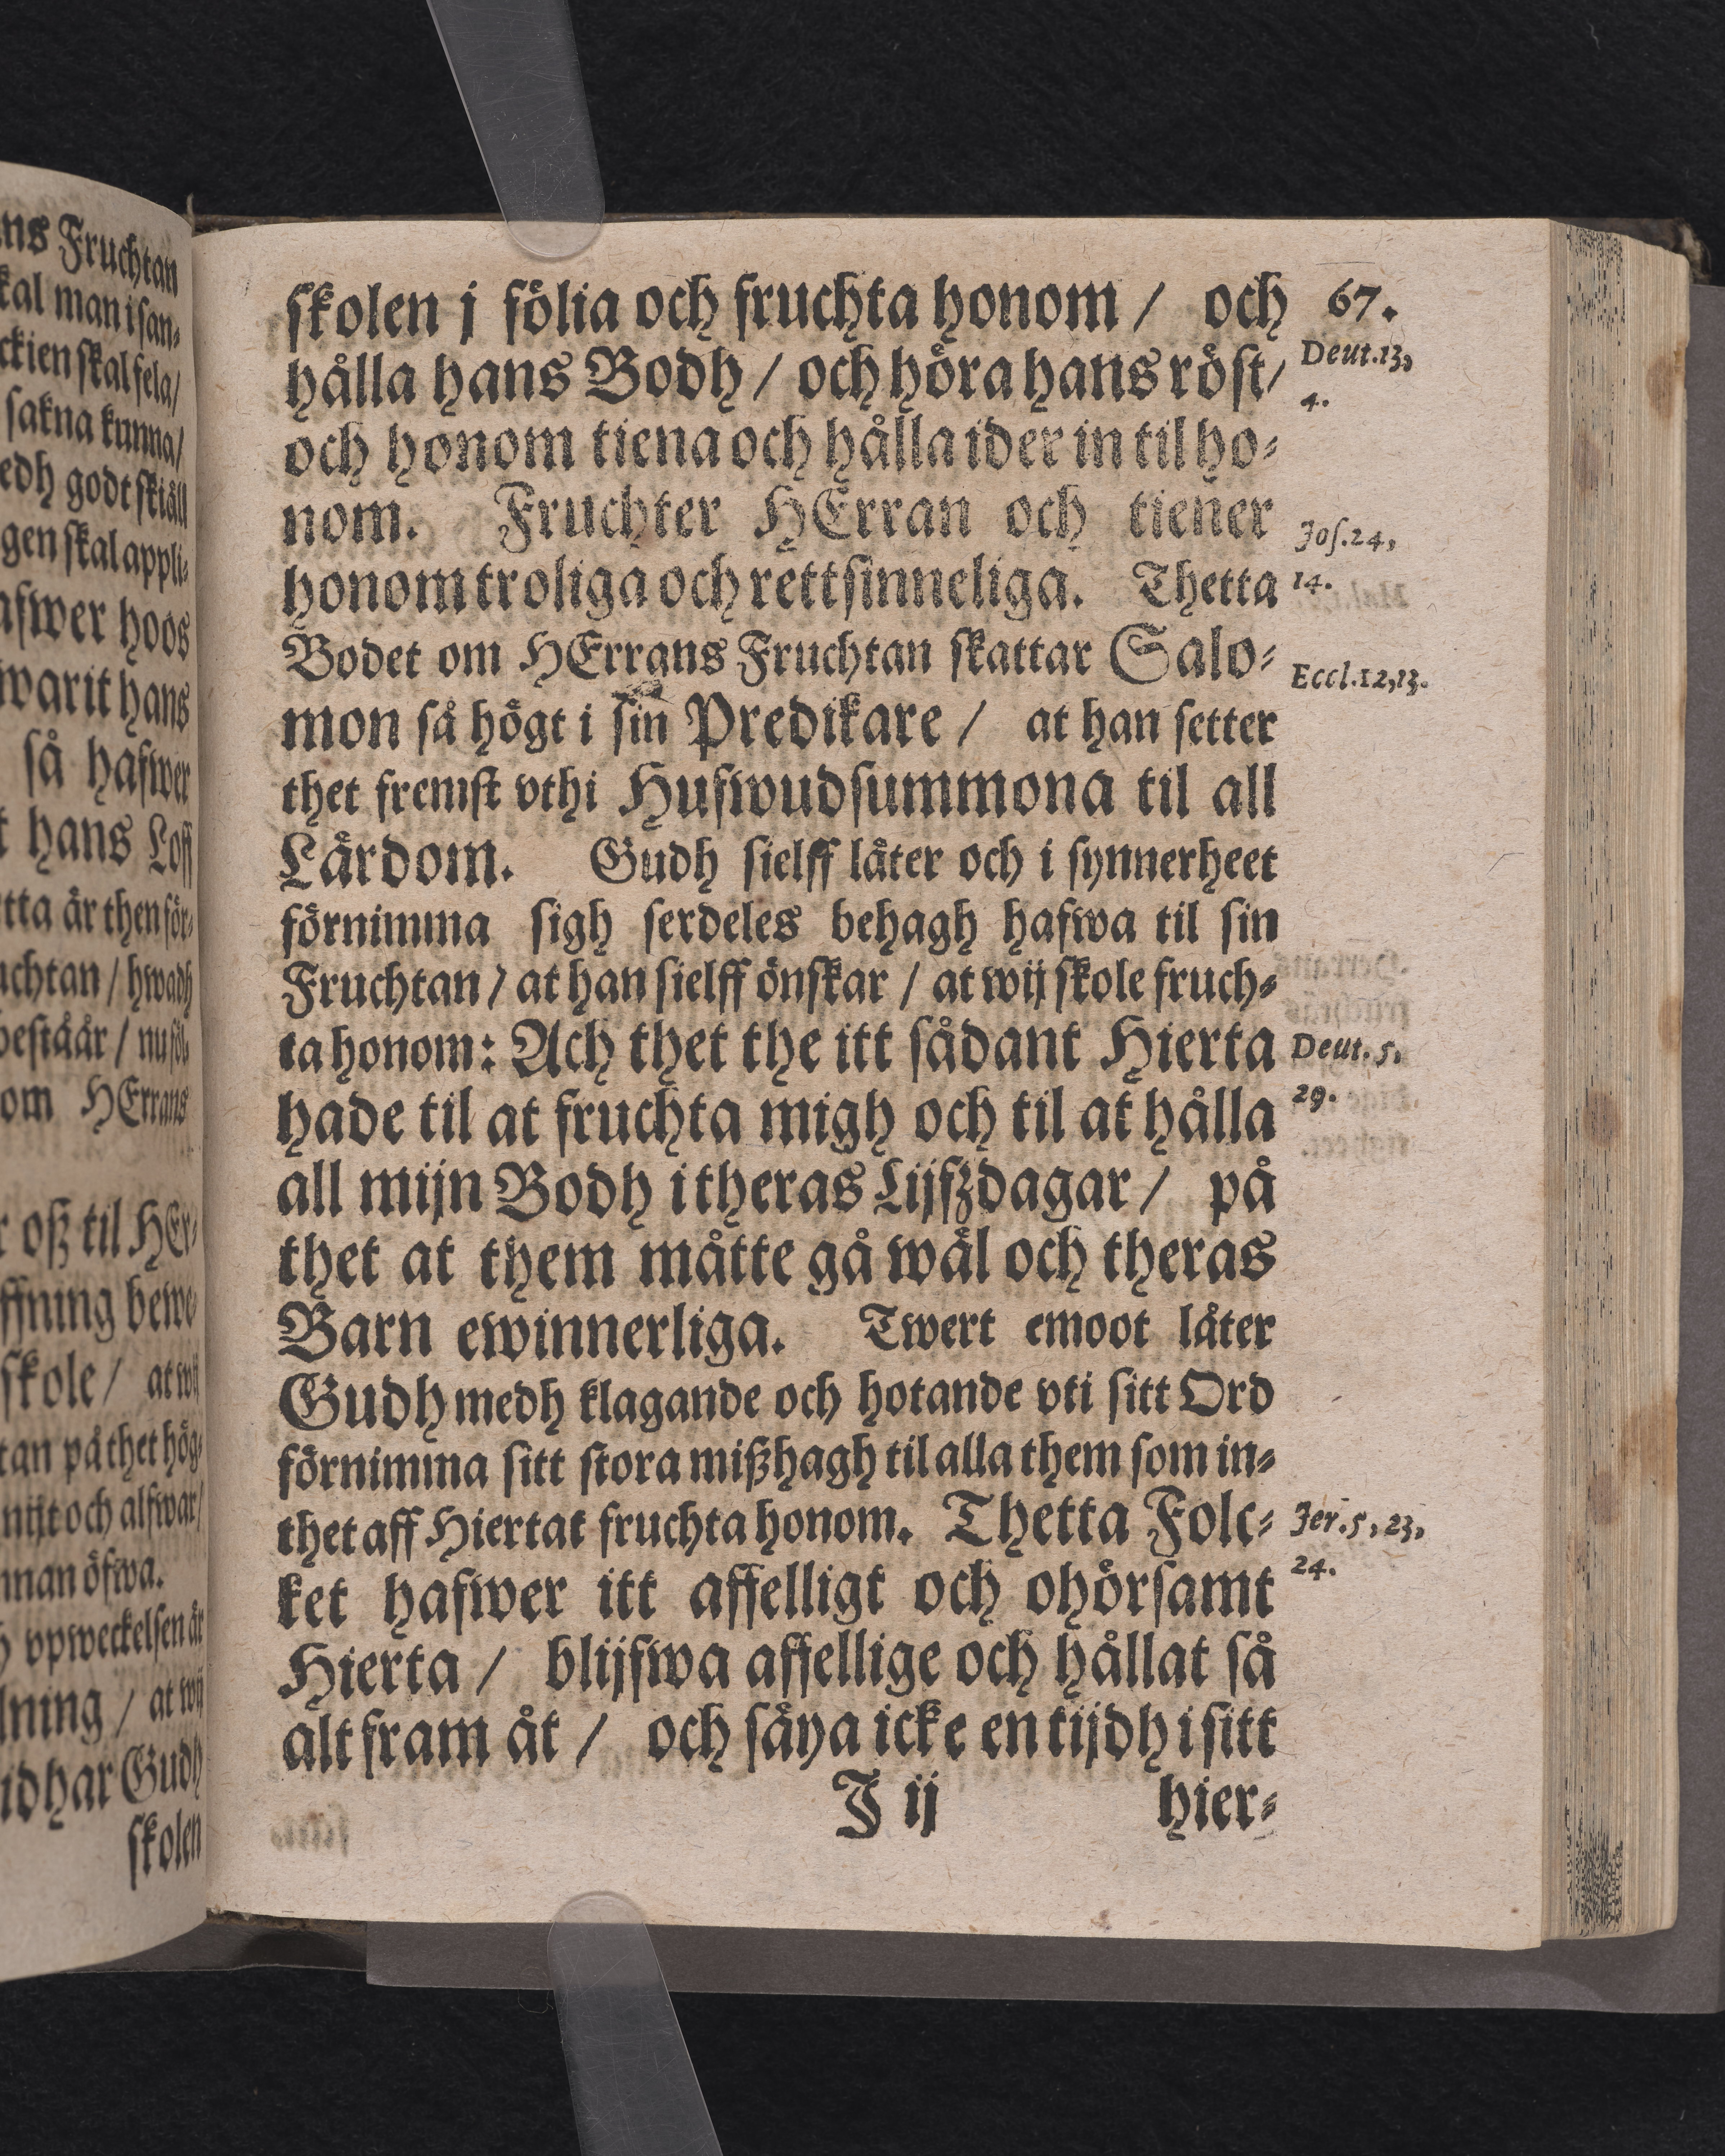 ns Fruchtan
kal man i san⸗
ckien skal fela/
sakna kunna/
edh godt skiäll
gen skal appli⸗
afwer hoos
warit hans
så hafwer
hans Loff
tta är then för⸗
uchtan / hwadh
bestäår / nu föl⸗
om HErrans
oß til HEr⸗
ffning bewe⸗
skole / at wij
tan på thet hög⸗
nijt och alfwar/
nnan öfwa.
h vpweckelsen är
lning / at wij
Gudh
skolen
skolen j fölia och fruchta honom / och 67.
hålla hans Bodh / och höra hans röst/ Deut.13,
4.
och honom tiena och hålla ider in til ho⸗
nom. Fruchter HErran och tiener Jos.24,
honom troliga och rettsinneliga. Thetta 14.
Bodet om HErrans Fruchtan skattar Salo⸗ Eccl.12,13.
mon så högt i sin Predikare / at han setter
thet fremst vthi Hufwudsummona til all
Lärdom. Gudh sielff låter och i synnerheet
förnimma sigh serdeles behagh hafwa til sin
Fruchtan / at han sielff önskar / at wij skole fruch⸗
ta honom: Ach thet the itt sådant Hierta Deut. 5,
hade til at fruchta migh och til at hålla 29.
all mijn Bodh i theras Lijfzdagar / på
thet at them måtte gå wäl och theras
Barn ewinnerliga. Twert emoot låter
Gudh medh klagande och hotande vti sitt Ord
förnimma sitt stora mißhagh til alla them som in⸗
thet aff Hiertat fruchta honom. Thetta Folc⸗ Jer.5, 23,
ket hafwer itt affelligt och ohörsamt 24.
Hierta / blijfwa affellige och hållat så
alt fram åt / och säya icke en tijdh i sitt
J ij hier⸗